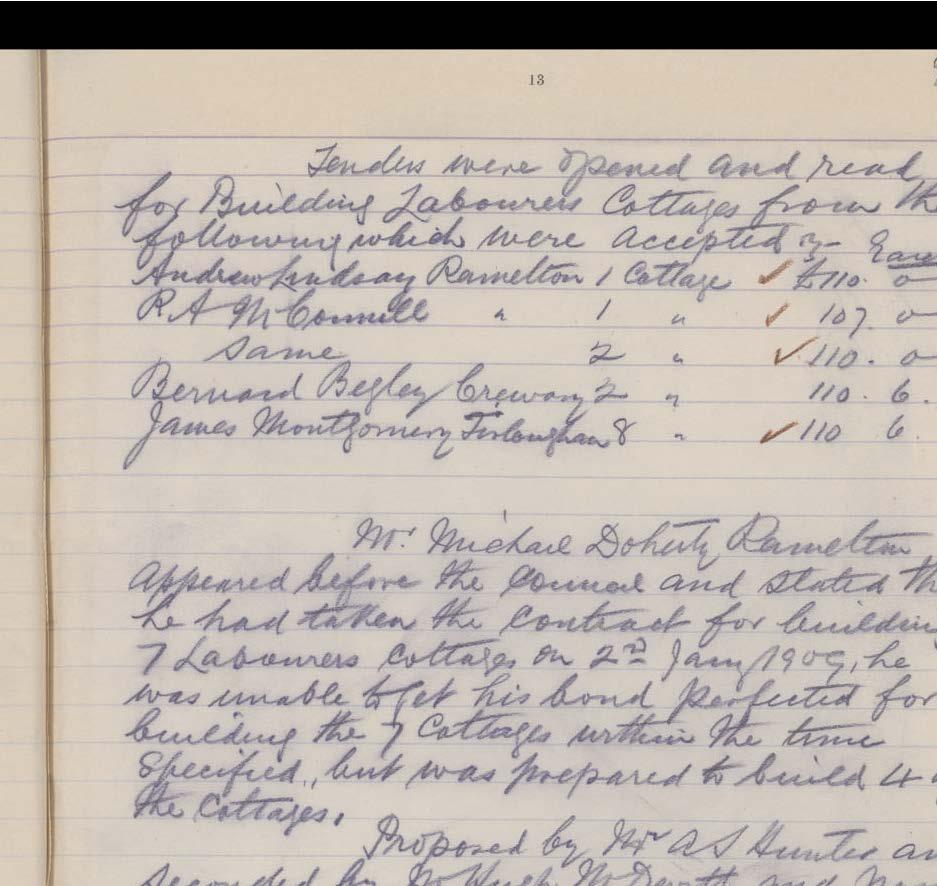 13
Tenders were opened and read
for Building Labourers Cottages from th
following which were accepted Each
Andrew Lindsay Ramelton 1 Cottage ✓ £110. 0
R. A McConnell " 1 " ✓ 107. 0
Same 2 " ✓ 110. 0
Bernard Begley 2 " 110. 6.
James Montgomery 8 " ✓ 110 6
Mr. Michael Doherty Ramelton
appeared before the Council and stated th
he had taken the contract for buildin
7 Labourers Cottages on 2nd Jany 1909, he
was unable to get his bond perfected for
building the 7 Cottages within the time
Specified, but was prepared to build 4
the Cottages.
Proposed by Mr A S Hunter an
seconded by Mr Hugh McDevitt and